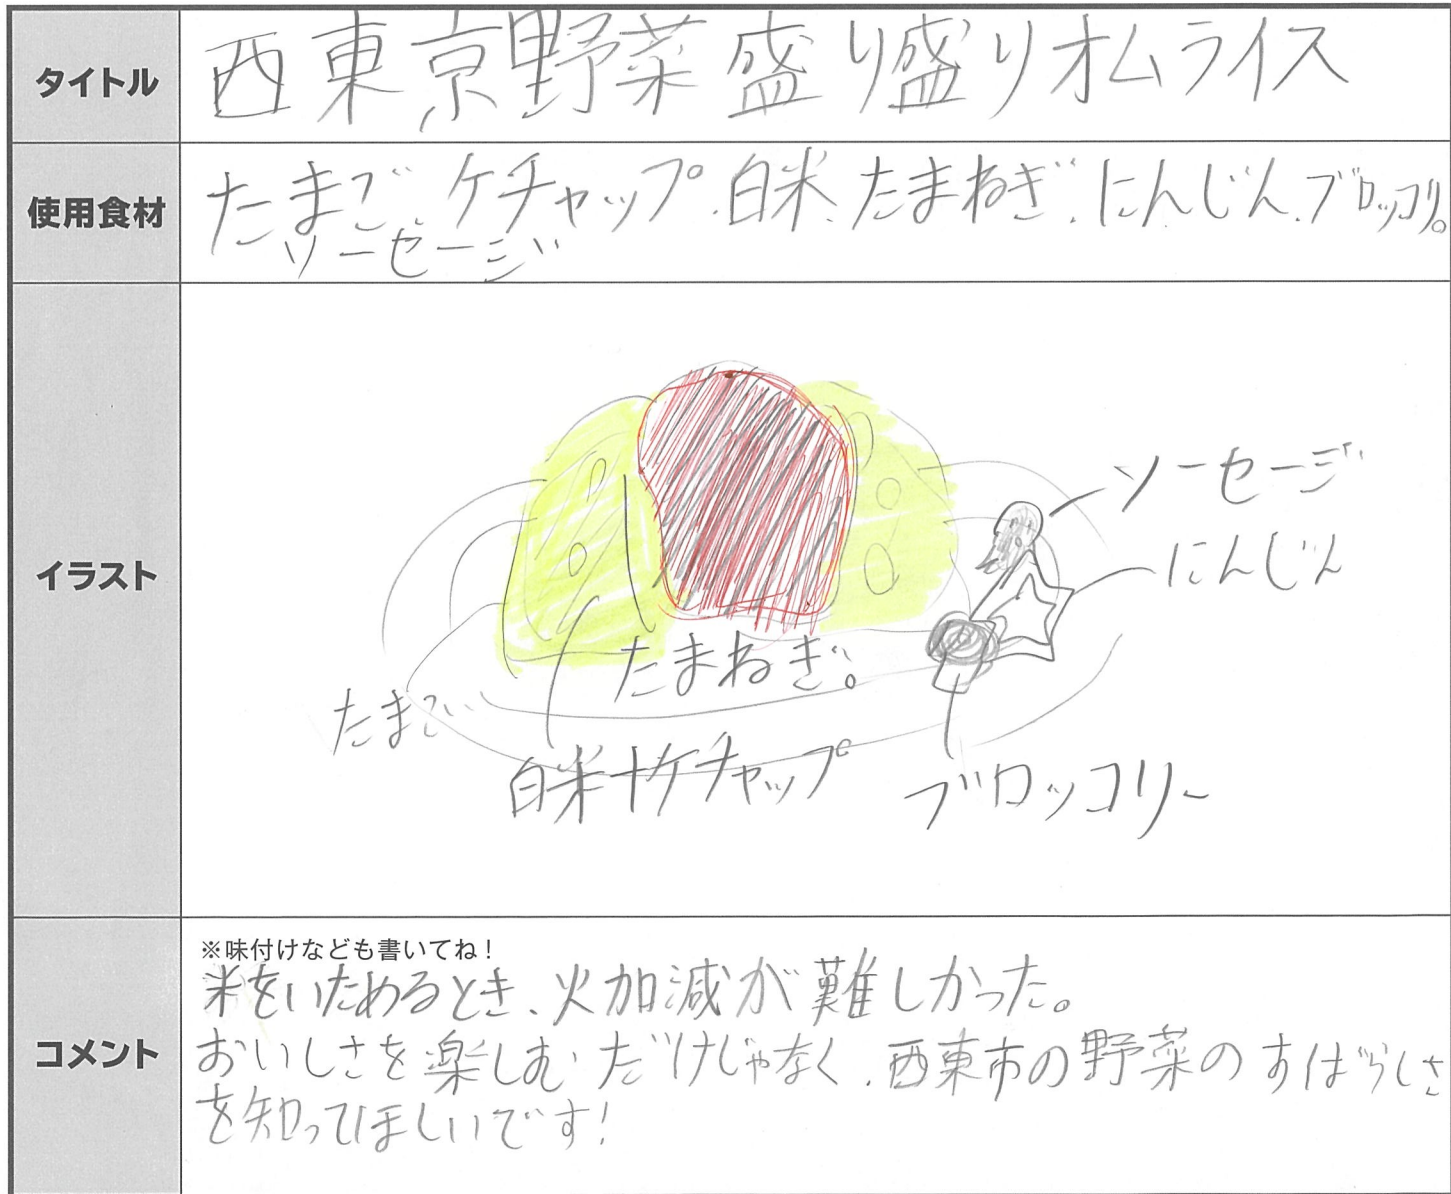 タイトル
西東京野菜盛り盛りオムライス
使用食材
たまご、ケチャップ、白米、たまねぎ、にんじん、ブロッコリ。
ソーセージ
イラスト
ソーセージ
にんじん
たまねぎ。
たまご
白米+ケチャップ
ブロッコリー
コメント
※味付けなども書いてね!
米をいためるとき、火加減が難しかった。
おいしさを楽しむだけじゃなく、西東市の野菜のすばらしさ
を知ってほしいです!